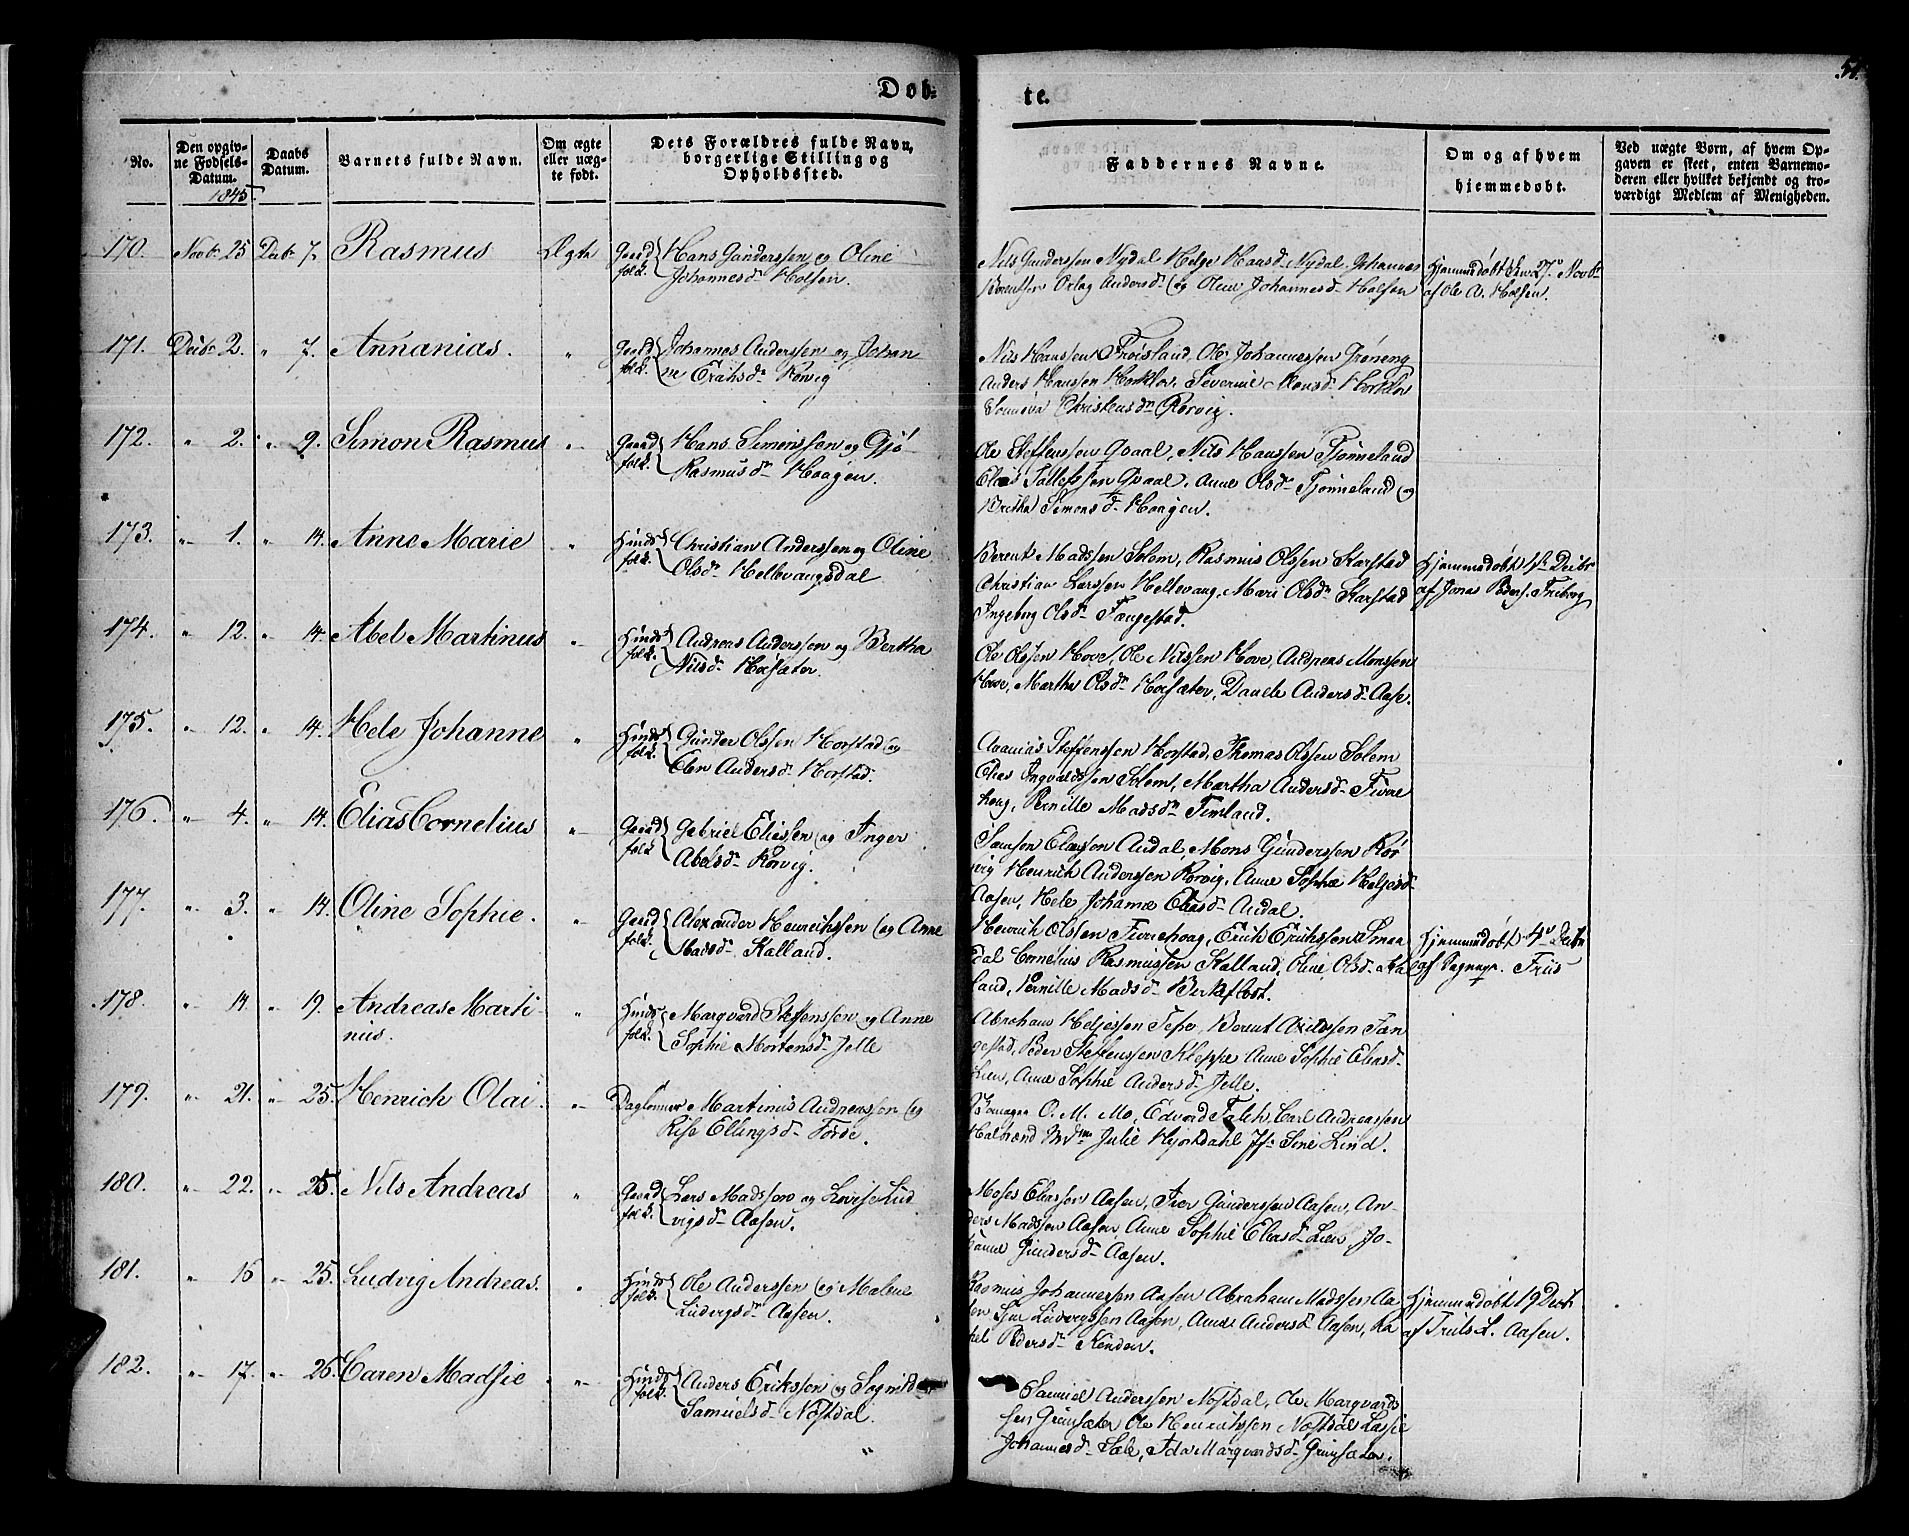 Døb-
te.
51.
No.
Den opgiv-
ne Fødsels-
Datum.
1845
Daabs
Datum.
Barnets fulde Navn.
Om ægte
eller uæg-
te født.
Dets Forældres fulde Navn,
borgerlige Stilling og
Opholdssted.
Faddernes Navne.
Om og af hvem
hjemmedøbt.
Ved uægte Børn, af hvem Op-
gaven er skeet, enten Barnemo-
deren eller hvilket bekjendt og tro-
værdigt Medlem af Menigheden.
170. Novbr 25 Decbr 7. Rasmus Ægte Gaard folk. Hans Gunderssen og Oline
Johannesd. Holsen.
Nils Gunderssen Nydal Helge Hansd. Nydal, Johannes
Berentsen Oslag Andersd. og Oline Johannesd. Holsen
Hjemmedøbt den 27de Novbr
af Ole A. Holsen.
171. Decbr 2. " 7. Annanias. " Gaard folk. Johannes Anderssen og Johan
ne Erichsd. Rørvig
Nils Hanssen Frøisland, Ole Johannessen Grøneng
Anders Hanssen Horklov, Severine Monsd. Horklov
Christensd. Rørvig.
172. " 2. " 9. Simon Rasmus " Gaard folk. Hans Simonssen og Gjø-
Rasmusd. Haagen.
Ole Steffenssen Qvaal, Nils Hanssen Tjønneland
Elias Tollefssen Qvaal, Anne Olsd. Tjønneland og
Brethe Simonsd. Haagen.
173. " 1. " 14. Anne Marie " Huusfolk. Christian Anderssen og Oline
Olsd. Hellevangsdal
Berent Madssen Solem, Rasmus Olssen Starstad
Christian Larssen Hellevang, Mari Olsd. Starstad
Ingeborg Olsd. Fangestad.
Hjemmedøbt 1ste Decbr
af Jonas Peders. Friborg
174. " 12. " 14. Abel Martinus " Huusfolk. Andreas Anderssen og Bertha
Nilsd. Hofsæter.
Ole Olssen Hove, Ole Nilssen Hove, Andreas Monssen
Hove, Martha Olsd. Hofsæter, Andersd. Aase.
175. " 12. " 14. Hele Johanne " Huusfolk. Gunder Olssen Horstad og
Elen Andersd. Horstad.
Ananias Steffenssen Horstad, Thomas Olssen Solem
Elias Ingvaldssen Solem, Martha Andersd. Furre
houg, Pernille Madsd. Fimland.
176. " 4. " 14. Elias Cornelius " Gaard folk. Gabriel Eliassen og Inger
Abelsd. Rørvig.
Samson Eliassen Andal, Mons Gunderssen Rør
vig Henrich Anderssen Rørvig, Anne Sophie Heljesd.
Aasen, Hele Johanne Eliasd. Andal.
177. " 3. " 14. Oline Sophie. " Gaard folk. Alexander Henrichssen og Anne
Madsd. Kalland.
Heinrich Olssen Furrehoug, Erich Erichssen Smaa
dal Cornelius Rasmussen Kalland, Oline Olsd. Kal
land, Pernille Madsd. Berkaflot.
Hjemmedøbt 4de Decbr
af Friis
178. " 14. " 19. Andreas Marti-
nus. " Huusfolk. Marqvard Steffenssen og Anne
Sophie Mortensd. Jelle
Abraham Heljessen Tefre, Berent Arildssen Fan
gestad, Peder Steffenssen Kleppe Anne Sophie Eliasd.
Lien, Anne Sophie Andersd. Jelle.
179. " 21. " 25. Henrich Olai. " Daglønner Martinus Andreassen og
Rise Ellingsd. Førde.
O. M. Mo, Edvard Falch, Carl Andreassen
Halbrænd Mdm Julie Hjortdahl Jfr Sine Lind.
180. " 22. " 25. Nils Andreas " Gaard folk. Lars Madssen og Lovise Lud
vigsd. Aasen.
Moses Eliassen Aasen, Iver Gunderssen Aasen, An-
ders Madssen Aasen, Anne Sophie Eliasd. Lien Jo-
hanne Gundersd. Aasen.
181. " 16 " 25. Ludvig Andreas. " Huusfolk. Ole Anderssen og Malene
Ludvigsd. Aasen.
Rasmus Johannessen Aasen Abraham Madssen Aa
sen Ludvigssen Aasen, Anne Andersd. Aasen, Ra
kel Pedersd. Kinden.
Hjemmedøbt 19 Decbr
af Truls L. Aasen.
182. " 17. " 26. Caren Madsie " Huusfolk. Anders Erikssen og Sognild
Samuelsd. Nøstdal.
Samuel Anderssen Nøstdal, Ole Marqvards
sen Grimsæter Ole Henrichssen Nøstdal Lassie
Johannesd. Sæle, Ida Marqvardsd. Grimsæter.